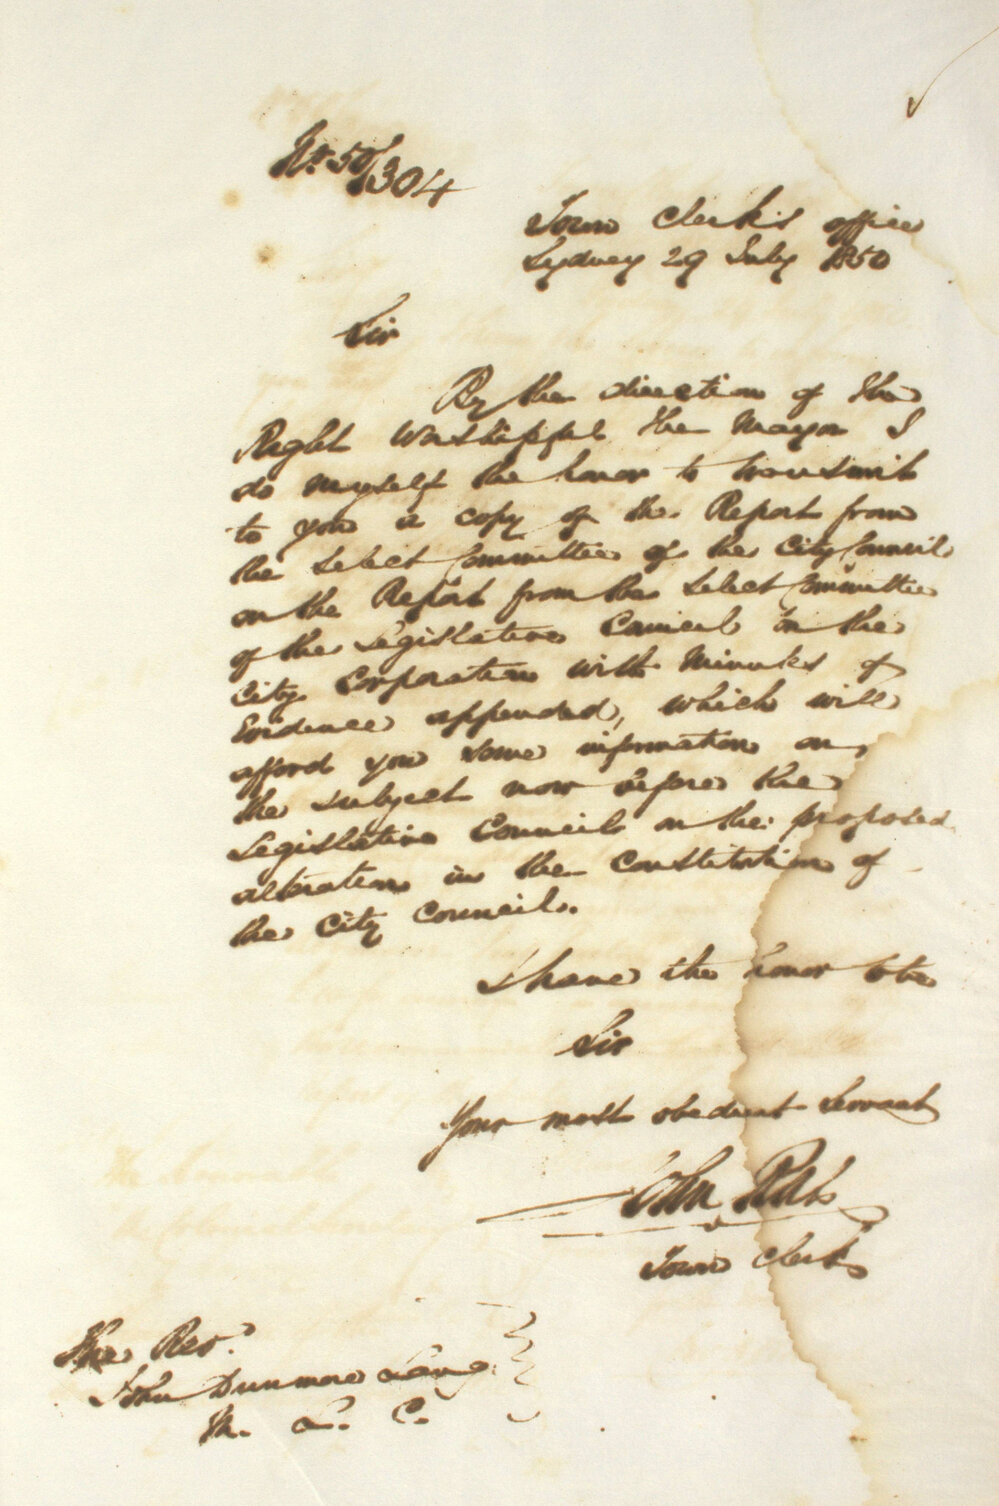 No. 50/304
Town Clerk's office
Sydney 29 July 1850
Sir
By the direction of the
Right Worshipful the Mayor I
do myself the honor to transmit
to you a copy of the Report from
the Select Committee of the City Council
on the Report from the Select Committee
of the Legislative Council on the
City Corporation with Minutes of
Evidence appended, which will
afford you some information on
the subject now before the
Legislative Council on the proposed
alteration in the Constitution of
the City Council.
I have the honor to be
Sir
Your most obedient Servant
John
Town Clerk
The Rev.
John Dunmore Lang
M. L. C.